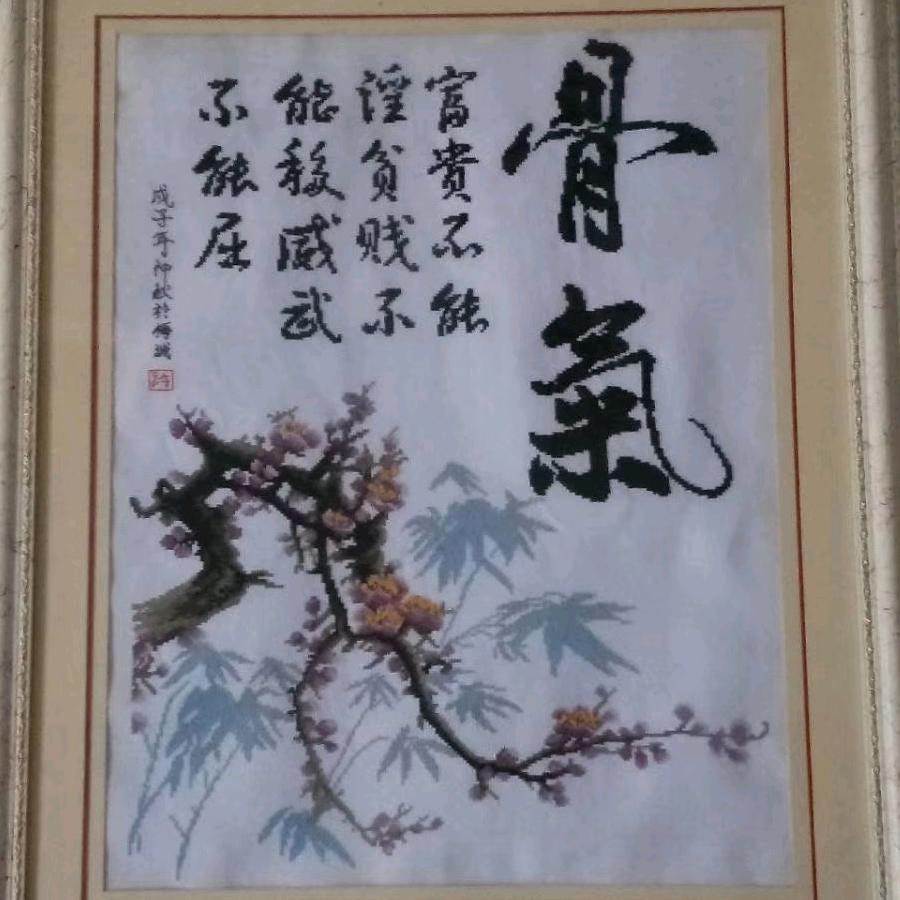 骨氣
富貴不能
淫貧賤不
能移威武
不能屈
戊子年仲秋於